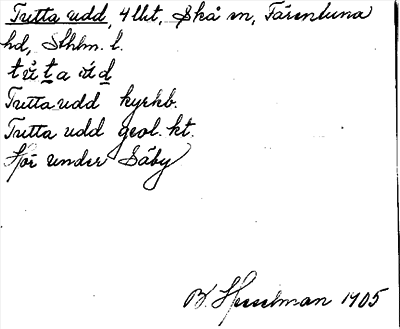 Tutta udd, 4 llkt, Skå sn, Färentuna
hd, Sthlm. l.
Tutta udd kyrkb.
Tutta udd geol. kt.
Hör under Säby
B. Hesselman 1905